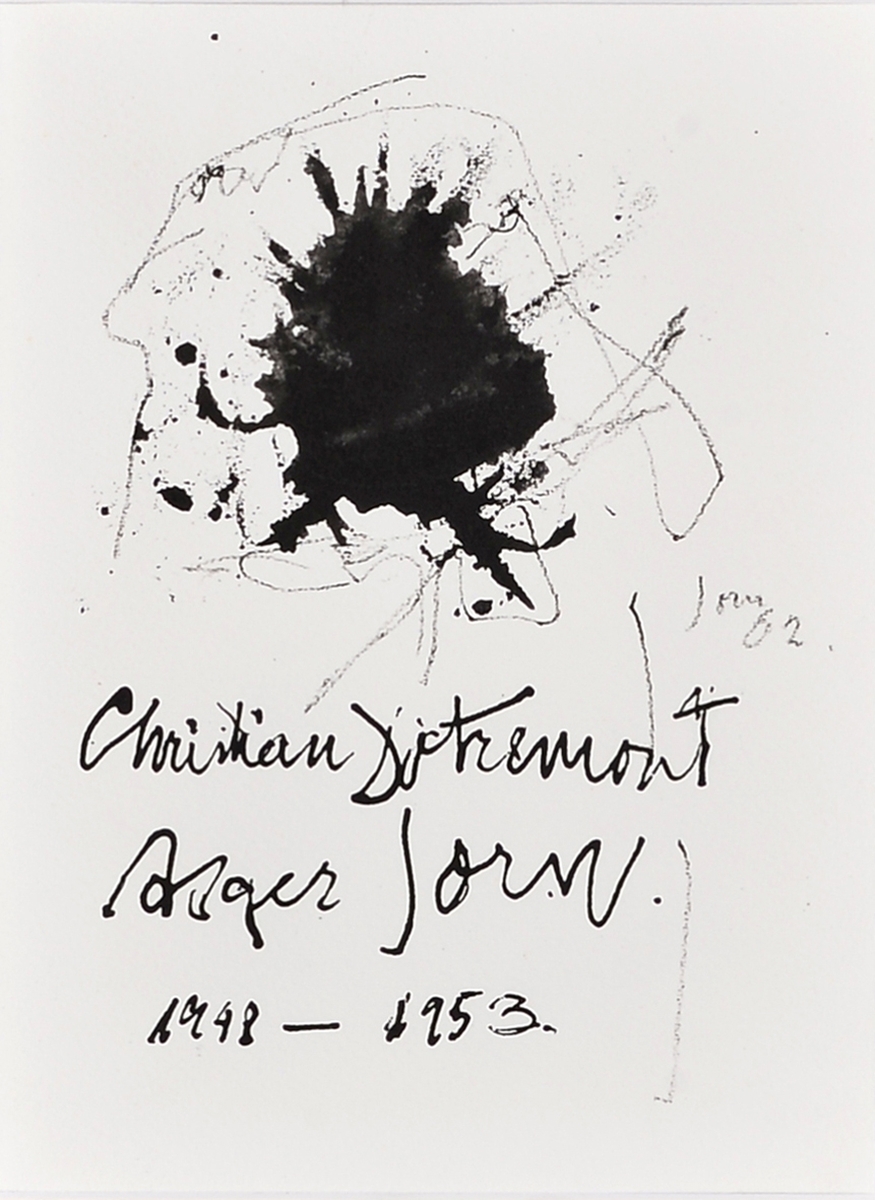 Jorn
62
Christian Dotremont
Asger Jorn.
1948 — 1953.